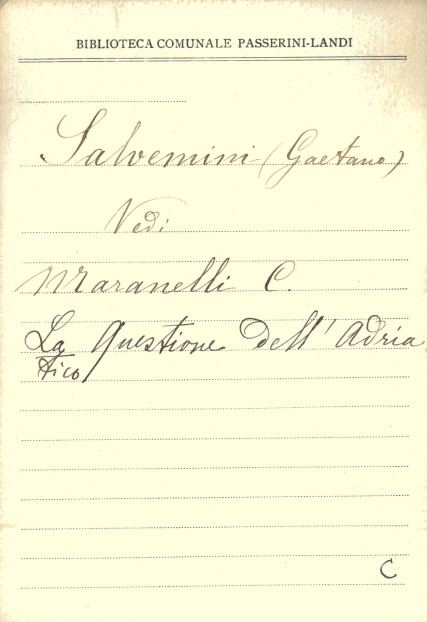 BIBLIOTECA COMUNALE PASSERINI-LANDI
Salvemini (Gaetano)
Vedi
Maranelli C.
La questione dell'Adria
tico
C